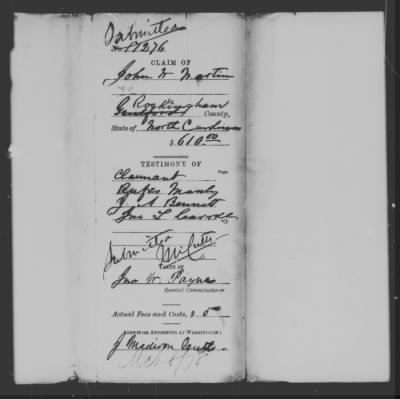 Submitted
No. 17276
CLAIM OF
John W Martin
Rockingham
Guilford County,
State of North Carolina
$ 610.00
TESTIMONY OF
Page.
Claimant
Rufus Manly
J. A Bennett
Jno L Carroll
Submitted
TAKEN BY
Jno W. Payne
Special Commissioner
Actual Fees and Costs, $
AGENTS OR ATTORNEYS AT WASHINGTON:
J Madison Cutts
Mch 8/78